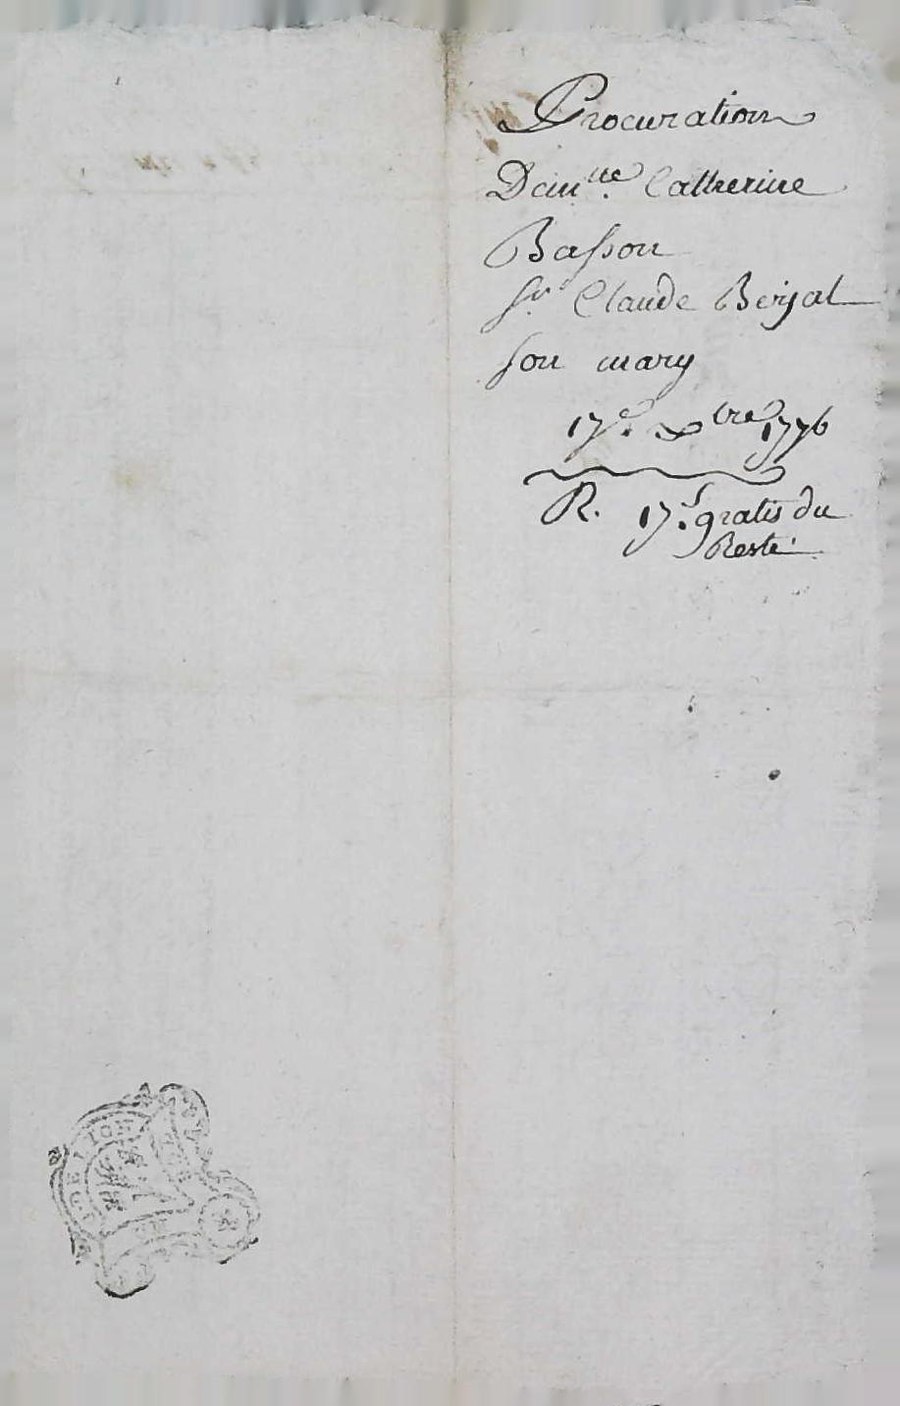 Procuration
Dam.lle Catherine
Basson
Sr. Claude Berjat
son mary
17e. xbre 1776
R. 17s. gratis du
Reste